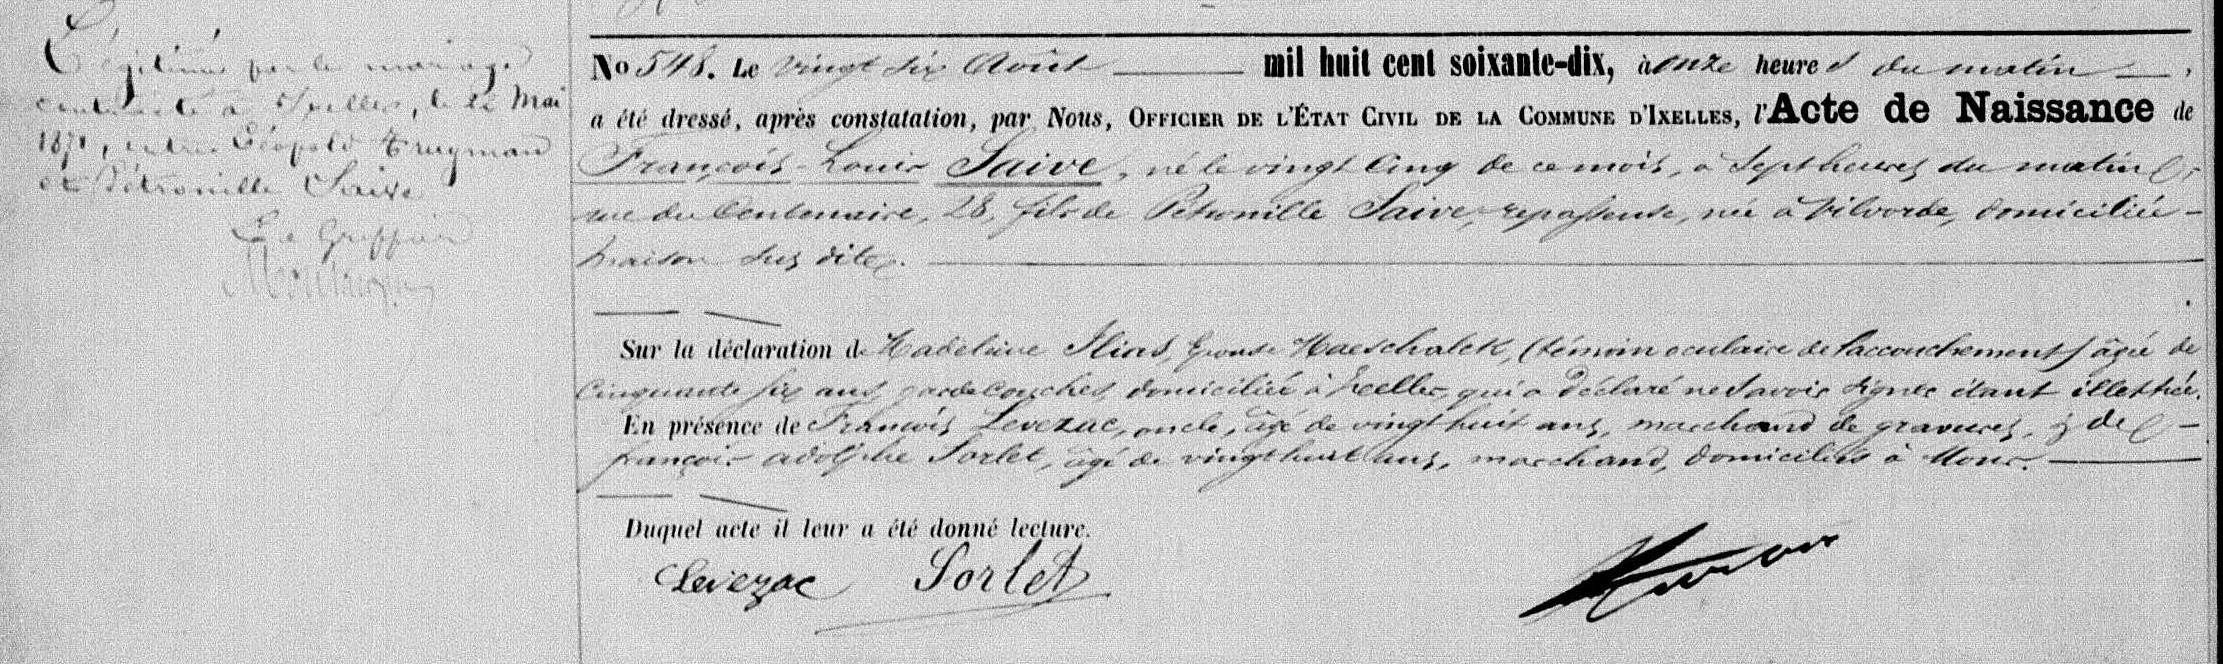 Légitimé par le mariage
contracté à Ixelles, le Mai
1871, entre Léopold
et Pétronille Saive
Le Greffier
No 548. Le vingt six Août mil huit cent soixante-dix, à onze heures du matin,
a été dressé, après constatation, par Nous, Officier de l'État Civil de la Commune d'Ixelles, l'Acte de Naissance de
François-Louis Saive, né le vingt cinq de ce mois, à sept heures du matin
rue du Centenaire, 28, fils de Pétronille Saive, repasseuse, née à Vilvorde, domiciliée
maison sus dite.
Sur la déclaration de Madeleine Ilias, Epouse Maeschalck, (témoin oculaire de l'accouchement) âgée de
cinquante six ans, garde couches, domiciliée à Ixelles, qui a déclaré ne savoir signer étant illettrée.
En présence de François Levezac, oncle, âgé de vingt huit ans, marchand de gravures, & de
françois adolphe Sorlet, âgé de vingt huit ans, marchand, domiciliés à Mons.
Duquel acte il leur a été donné lecture.
Levezac Sorlet